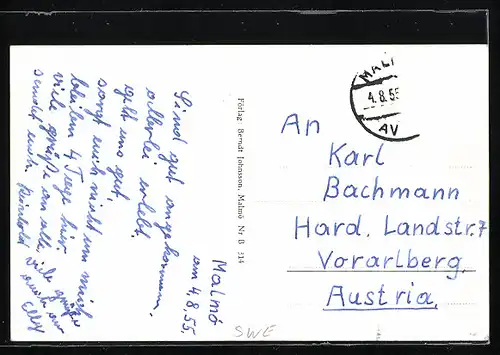 Malmö
am 4.8.55.
Sind gut angekommen,
allerlei erlebt.
geht uns gut.
sorgt euch nicht um mich
bleiben 4 Tage hier.
viele Grüße an alle,
sendet euch Reinhold
viele Grüße
auch von
Elly
Förlag Berndt Johnsson, Malmö Nr B 314
MAL
4.8.55
AV
An
Karl
Bachmann
Hard. Landstr. 7
Vorarlberg.
Austria.
SWE